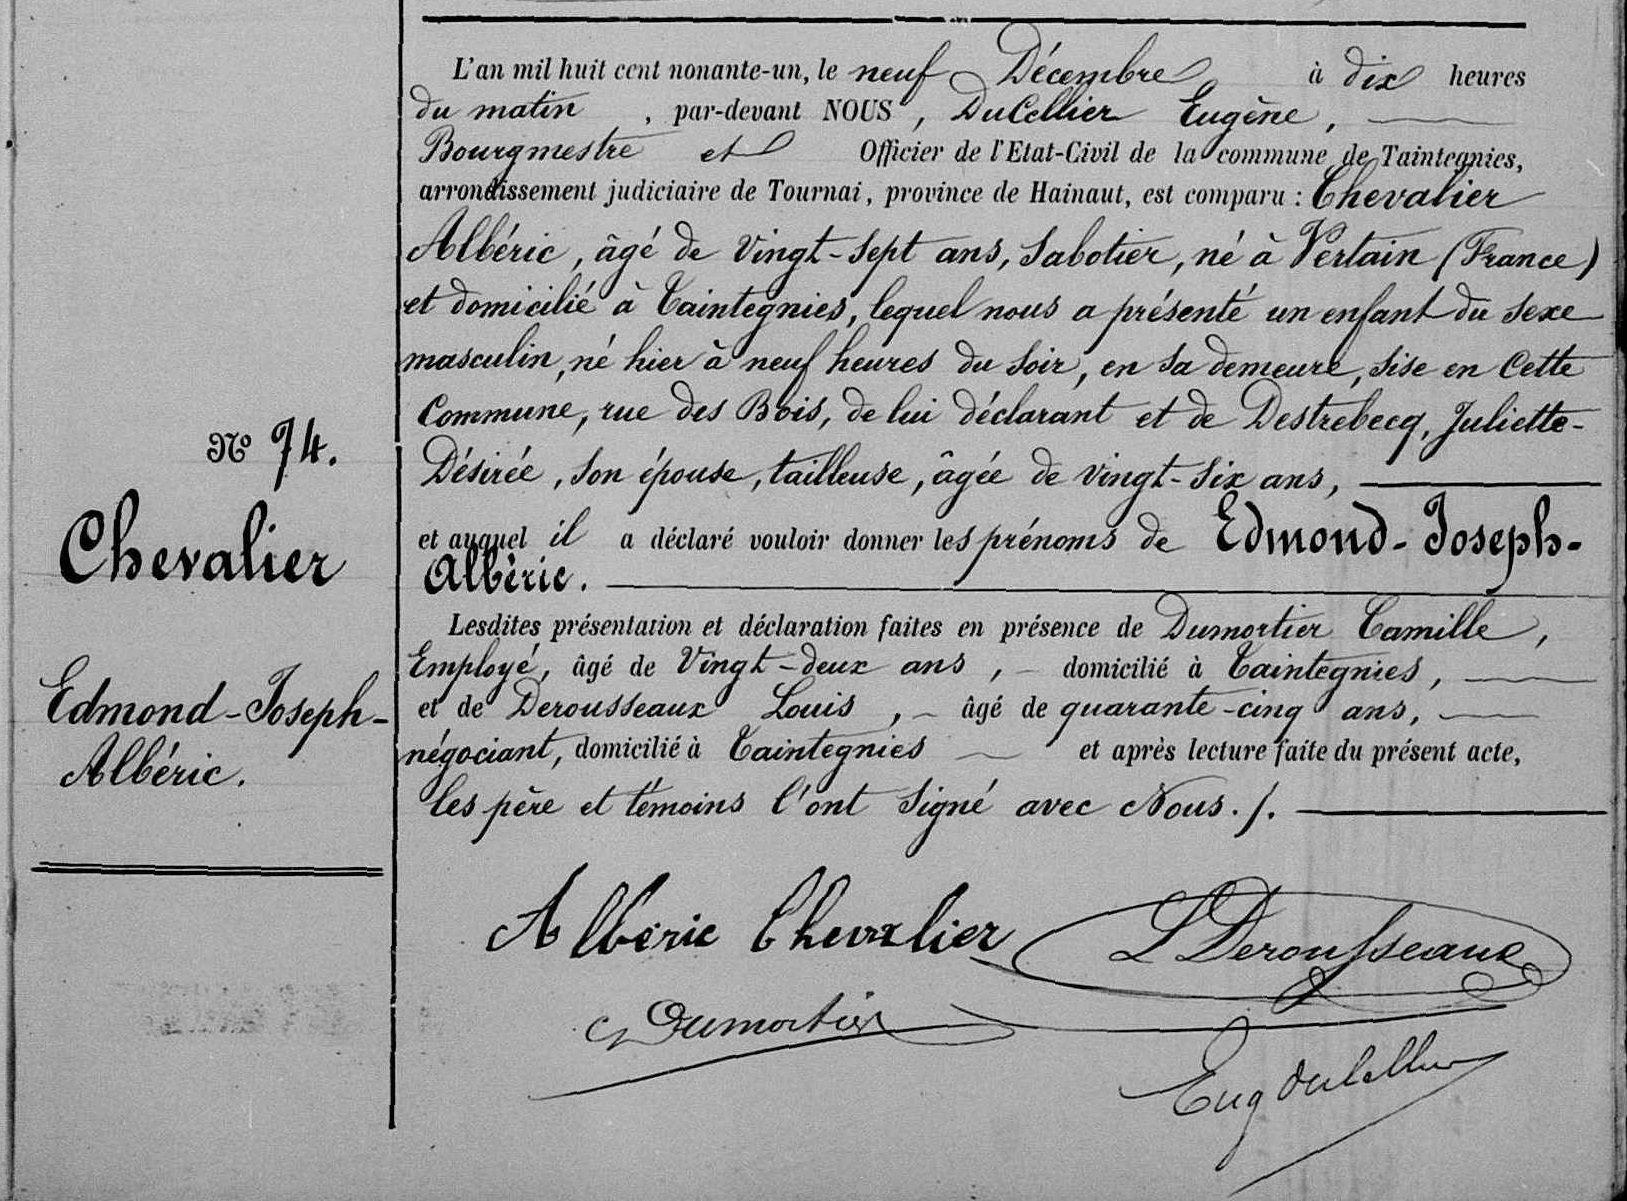 L'an mil huit cent nonante-un, le neuf Décembre à dix heures
du matin, par-devant NOUS, DuCellier Eugène,
Bourgmestre et Officier de l'Etat-Civil de la commune de Taintegnies,
arrondissement judiciaire de Tournai, province de Hainaut, est comparu : Chevalier
Albéric, âgé de vingt-sept ans, Sabotier, né à Vertain (France)
et domicilié à Taintegnies, lequel nous a présenté un enfant du sexe
masculin, né hier à neuf heures du soir, en sa demeure, sise en cette
Commune, rue des Bois, de lui déclarant et de Destrebecq, Juliette-
Désirée, son épouse, tailleuse, âgée de vingt-six ans,
et auquel il a déclaré vouloir donner les prénoms de Edmond-Joseph-
Albéric.
Lesdites présentation et déclaration faites en présence de Dumortier Camille,
Employé, âgé de Vingt-deux ans, domicilié à Taintegnies,
et de Derousseaux Louis, âgé de quarante-cinq ans,
négociant, domicilié à Taintegnies et après lecture faite du présent acte,
les père et témoins l'ont signé avec Nous./.
N° 74.
Chevalier
Edmond-Joseph-
Albéric.
Albéric Chevalier
L Derousseaux
C Dumortier
Eug Ducellier